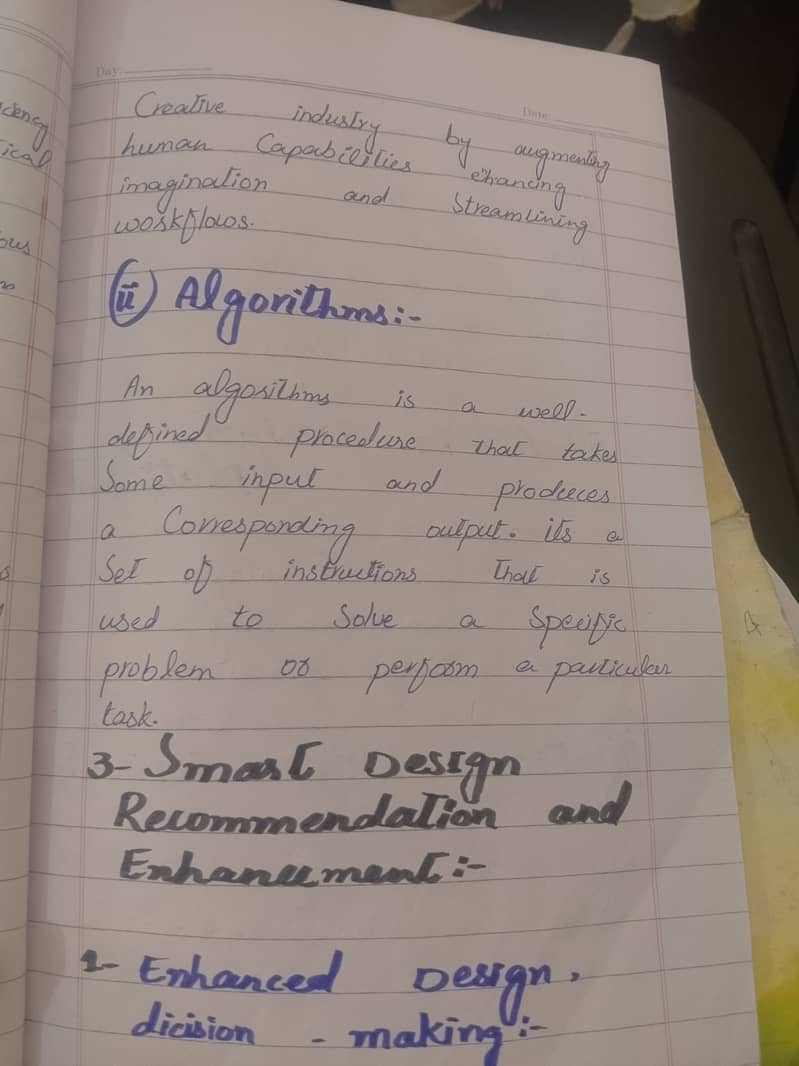 Day:
Date:
Creative industry by augmenting
human Capabilities ehancing
imagination and Streamlining
workflows.
(ii) Algorithms:-
An algorithms is a well-
defined procedure that takes
Some input and produces
a Corresponding output. its a
Set of instructions that is
used to Solve a Specific
problem or perform a particular
task.
3- Smart Design
Recommendation and
Enhancement:-
1- Enhanced Design.
dicision - making:-